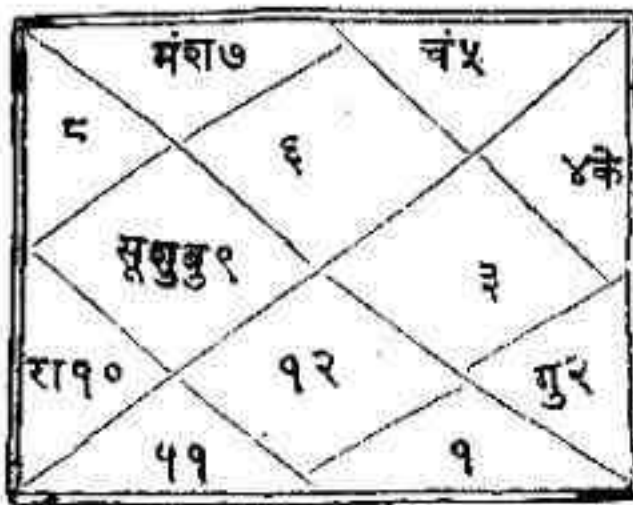 मंश७
चं५
८
६
४के
सूशुबु९
३
रा१०
१२
गु२
५१
१